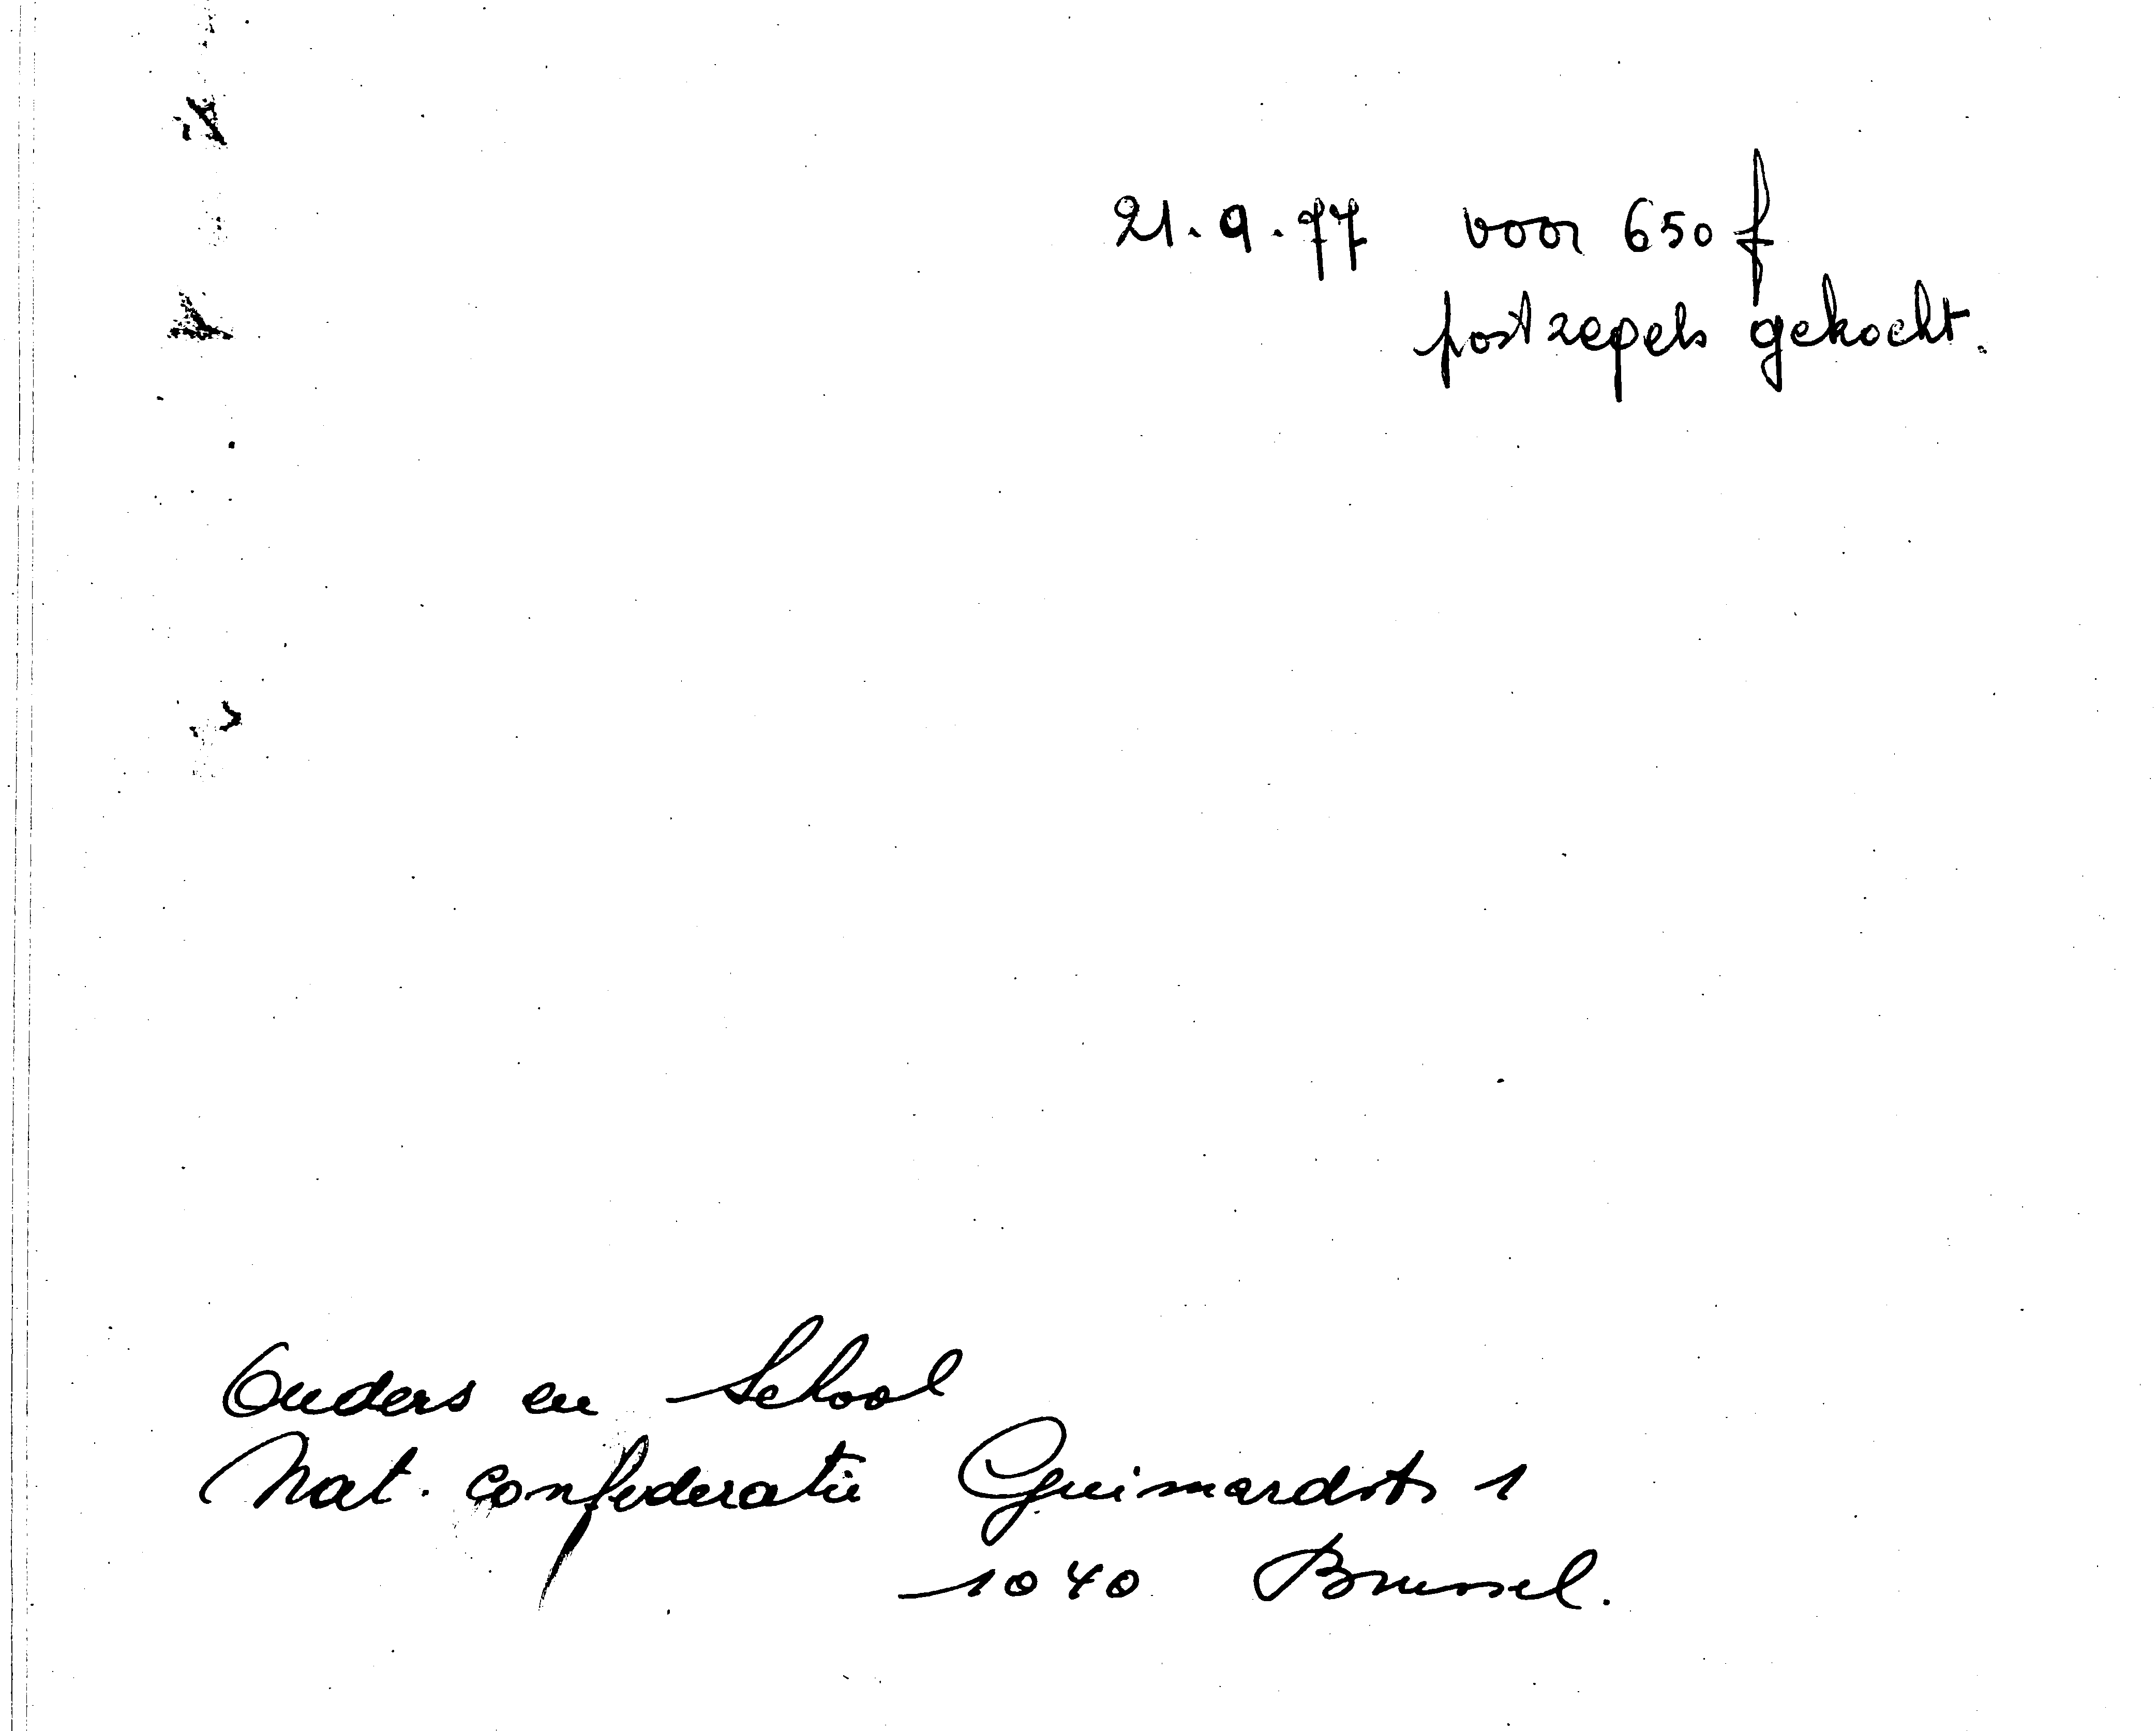 21.9.77 voor 650 f
postzegels gekocht.
Ouders en School
Nat. Confederatie Guimardstr 1
1040 Brussel.